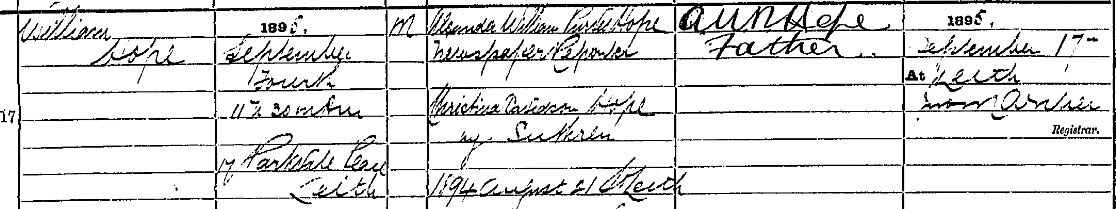 William
Hope
17
1895.
September
Fourth
11h 30m A.M.
17 Parkvale Place
Leith
M
Alexander William Hope
Newspaper Reporter
Christina Davidson Hope
1894 August 21 Leith
Hope
Father
1895.
September 17th
At Leith
Archer
Registrar.